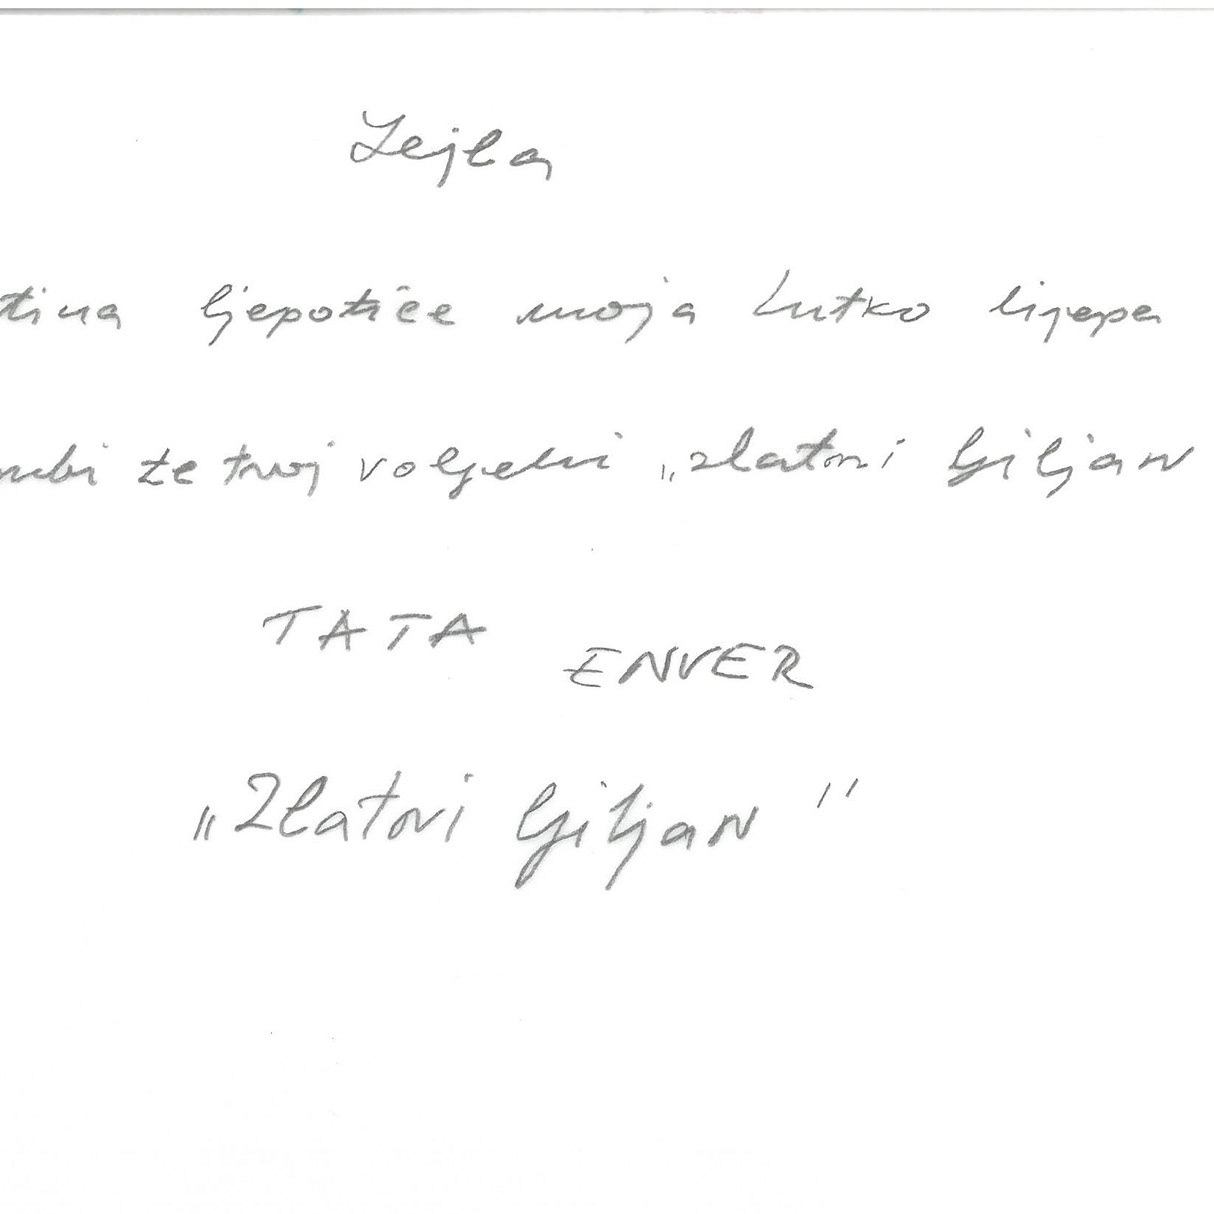 Lejla
tina ljepotiče moja Lutko lijepa
te tvoj voljeni „zlatni ljiljan
TATA ENVER
„Zlatni ljiljan"